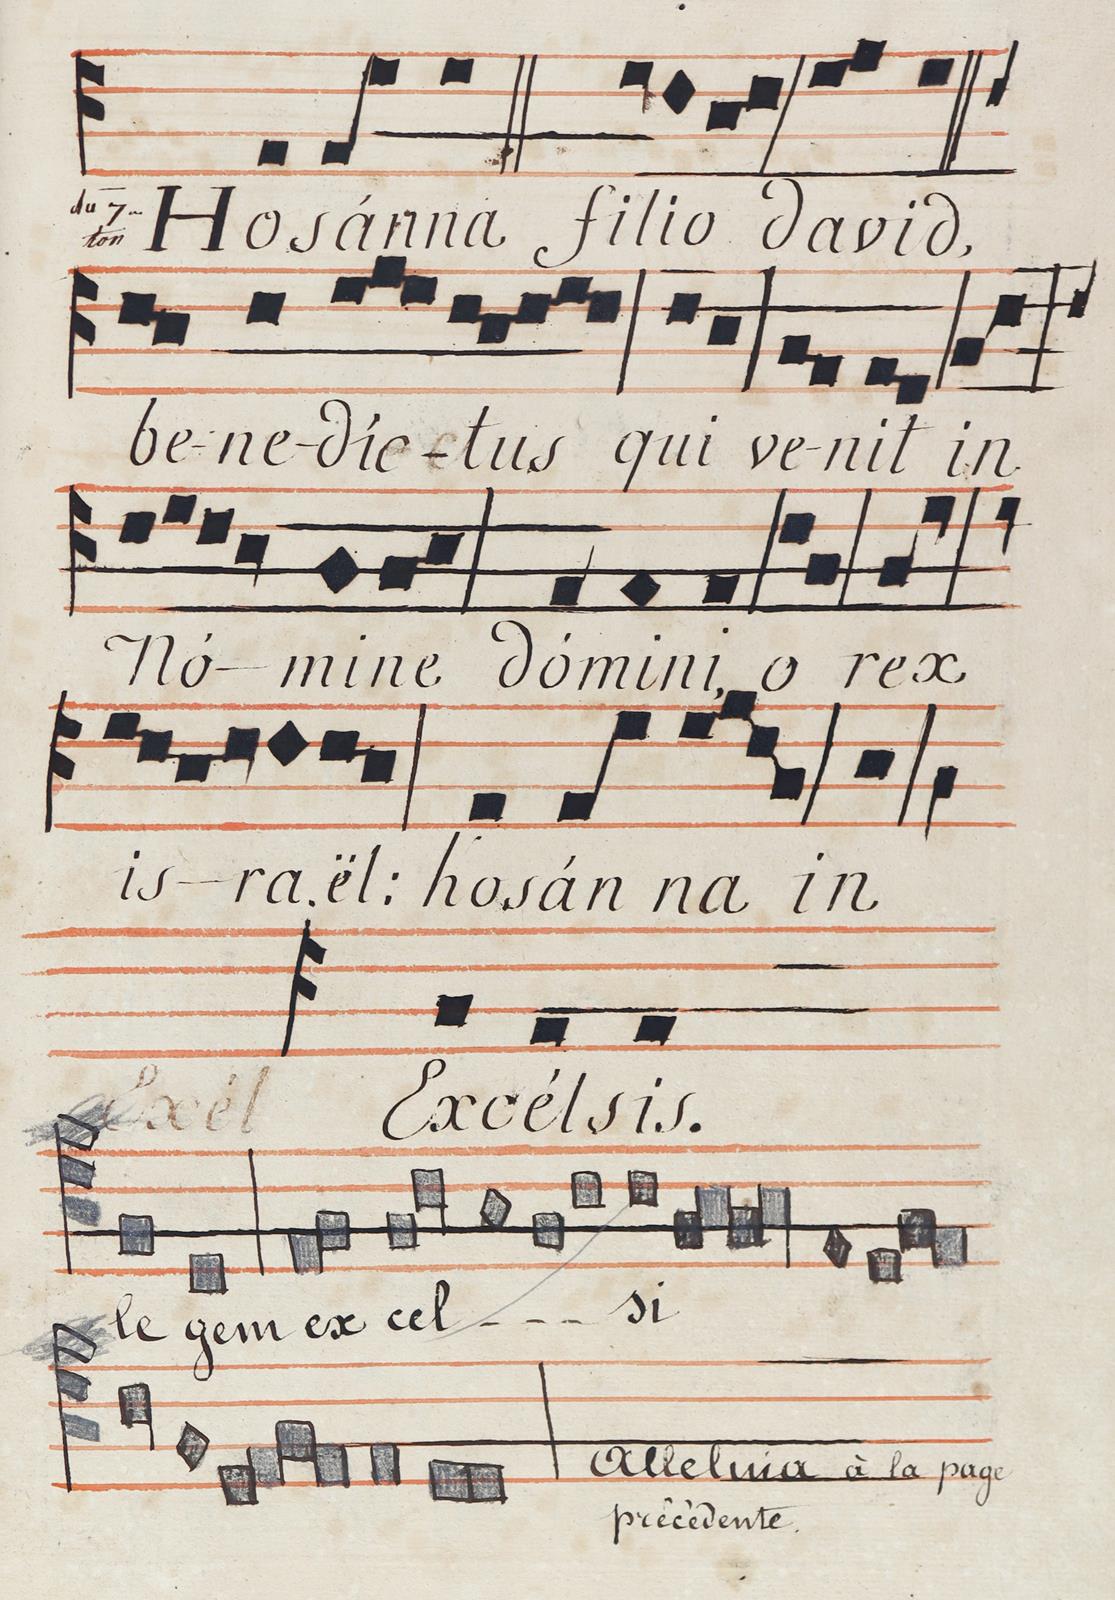 du 7
ton
Hosánna filio david,
be-ne-díc-tus qui ve-nit in
Nó-mine dómini, o rex
is-ra.ël: hosán na in
Excél Excélsis.
le gem ex cel - - - si
Alleluia à la page
précédente.